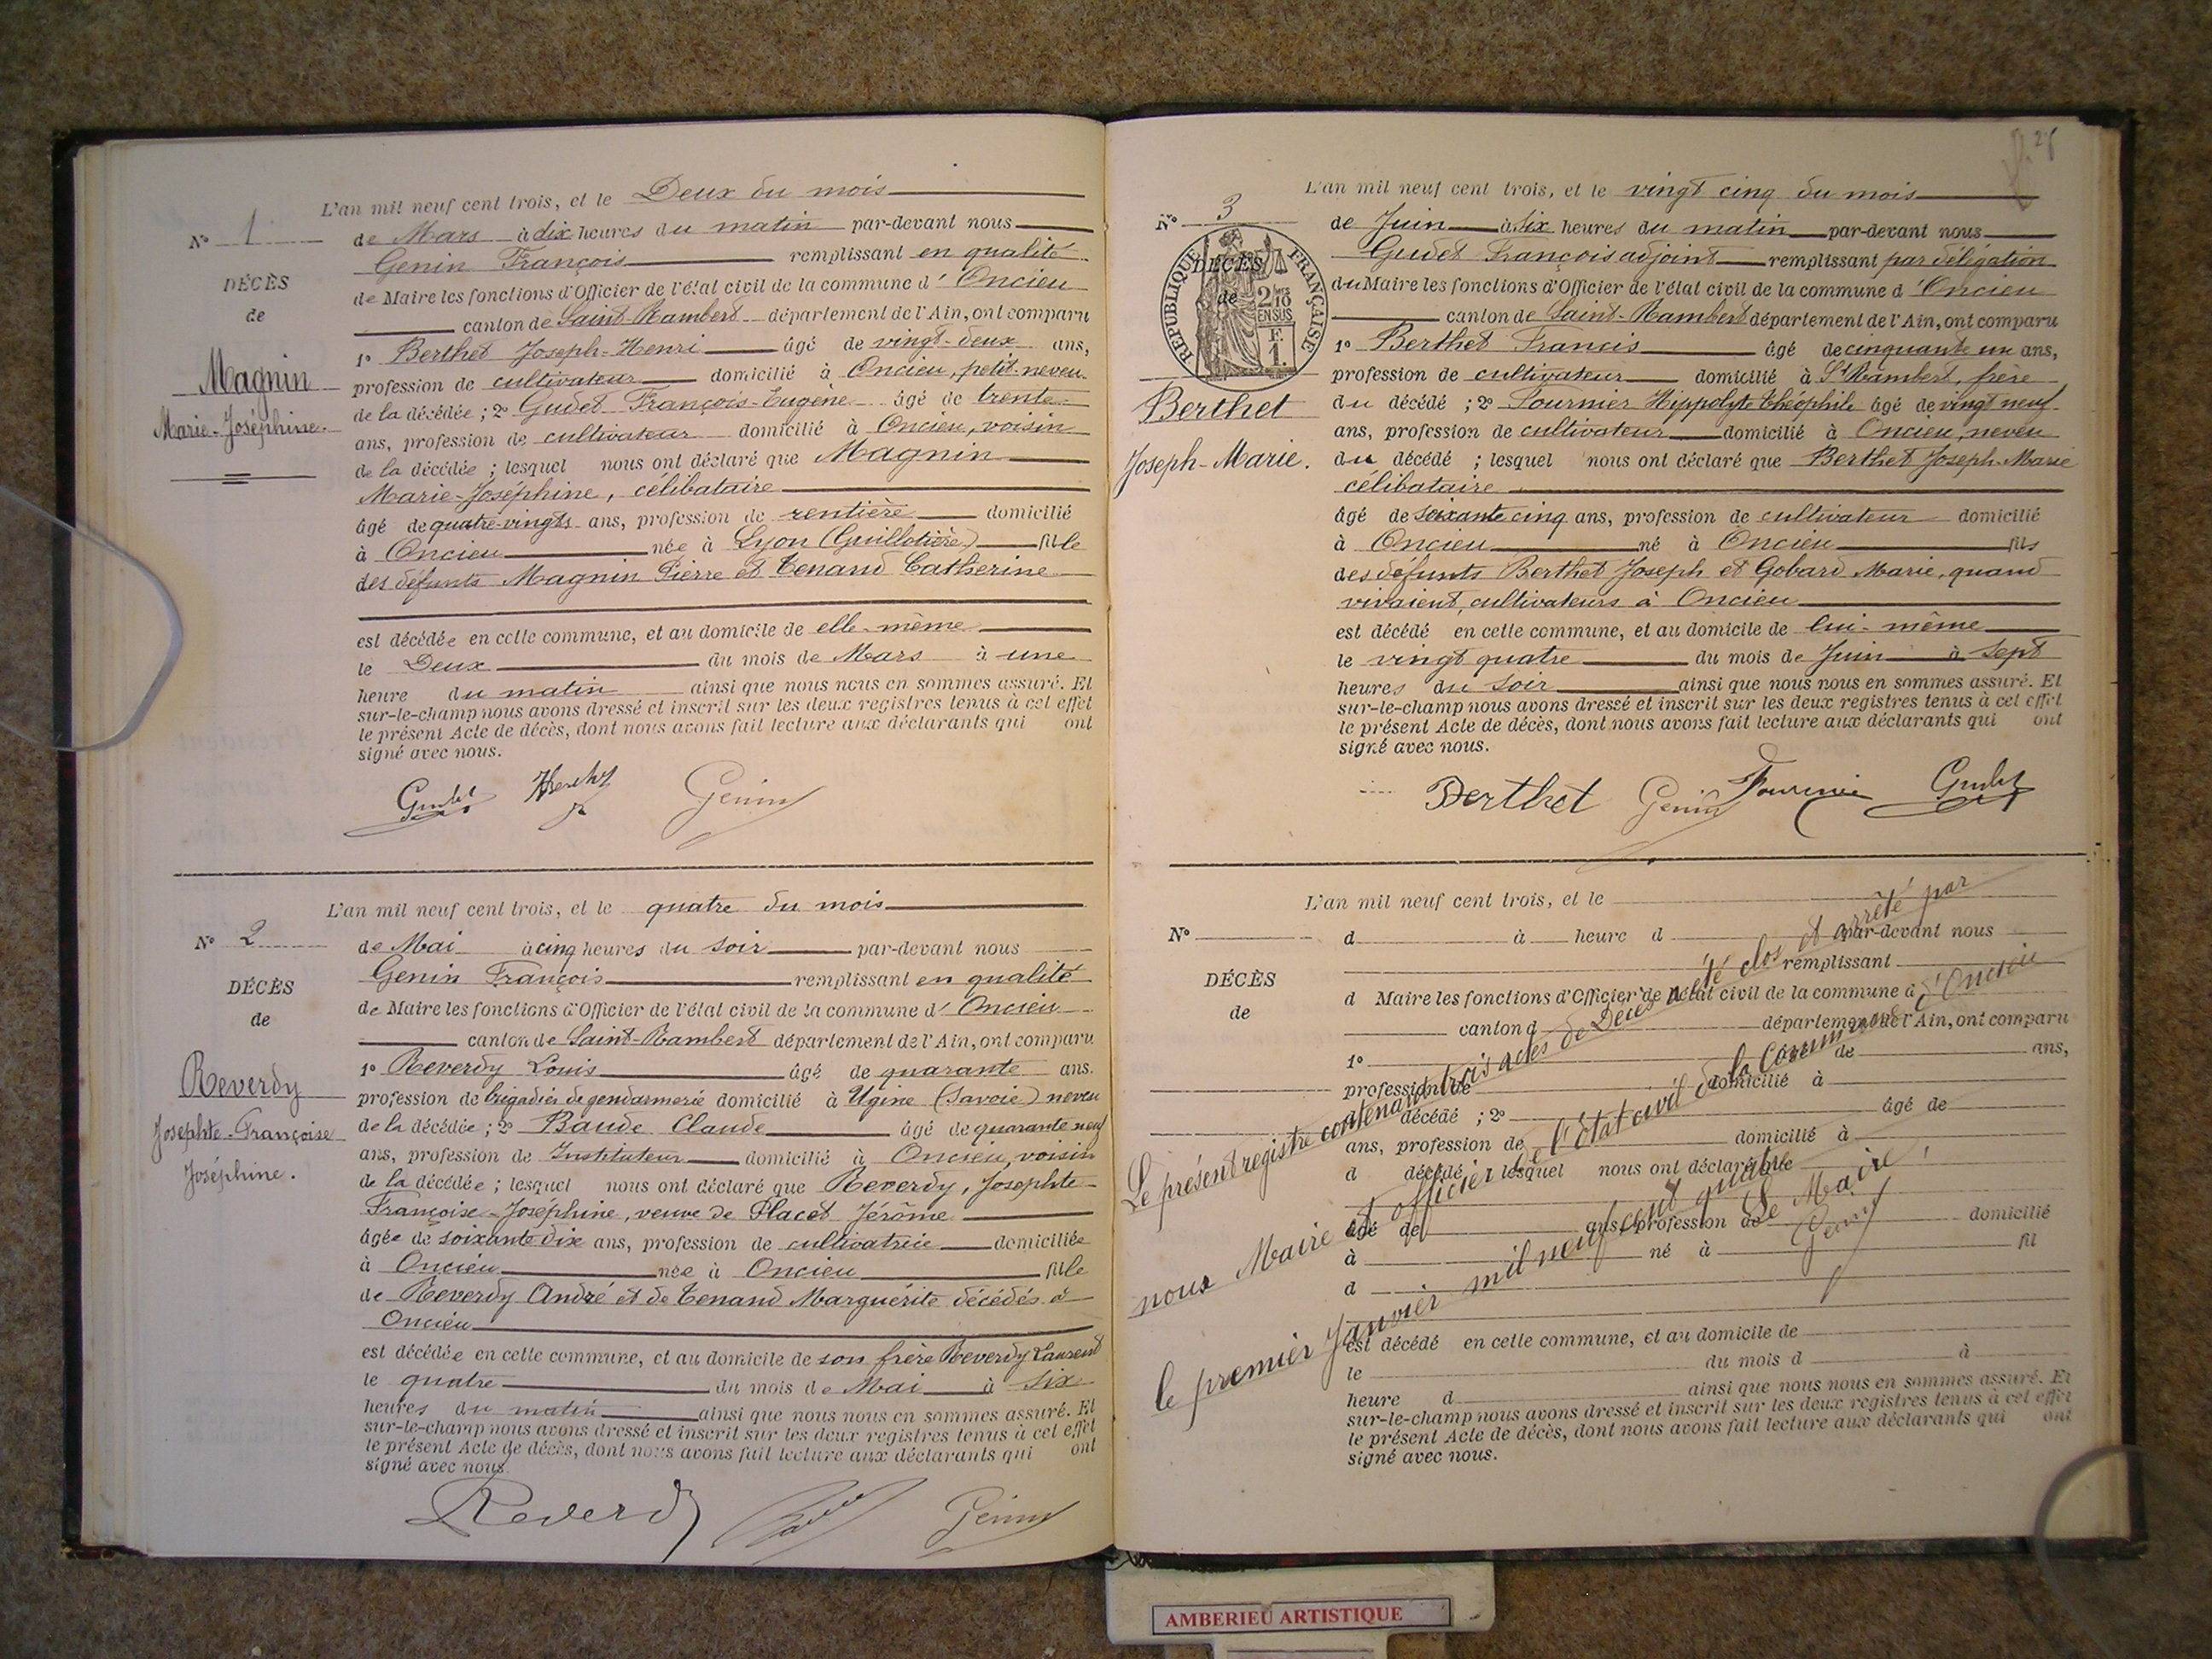 L'an mil neuf cent trois, et le Deux du mois
N° 1
de Mars à dix heures du matin par-devant nous
Genin François remplissant en qualité
DÉCÈS
de Maire les fonctions d'Officier de l'état civil de la commune d'Oncieu
de
canton de Saint-Rambert département de l'Ain, ont comparu
1° Berthet Joseph-Henri âgé de vingt-deux ans,
Magnin
profession de cultivateur domicilié à Oncieu, petit-neveu
Marie-Joséphine.
de la décédée ; 2° Gudet François-Eugène âgé de trente
ans, profession de cultivateur domicilié à Oncieu, voisin
de la décédée ; lesquel nous ont déclaré que Magnin
Marie-Joséphine, célibataire
âgé de quatre-vingts ans, profession de rentière domicilié
à Oncieu née à Lyon (Guillotière) fille
des défunts Magnin Pierre et Tenand Catherine
est décédée en cette commune, et au domicile de elle-même
le Deux du mois de Mars à une
heure du matin ainsi que nous nous en sommes assuré. Et
sur-le-champ nous avons dressé et inscrit sur les deux registres tenus à cet effet
le présent Acte de décès, dont nous avons fait lecture aux déclarants qui ont
signé avec nous.
Gudet Genin
L'an mil neuf cent trois, et le quatre du mois
N° 2
de Mai à cinq heures du soir par-devant nous
Genin François remplissant en qualité
DÉCÈS
de Maire les fonctions d'Officier de l'état civil de la commune d'Oncieu
de
canton de Saint-Rambert département de l'Ain, ont comparu
1° Reverdy Louis âgé de quarante ans.
Reverdy
profession de brigadier de gendarmerie domicilié à Ugine (Savoie) neveu
Josephte-Françoise
de la décédée ; 2° Baude Claude âgé de quarante neuf
ans, profession de Instituteur domicilié à Oncieu, voisin
Joséphine.
de la décédée ; lesquel nous ont déclaré que Reverdy, Josephte-
Françoise-Joséphine, veuve de Placet Jérôme
âgée de soixante dix ans, profession de cultivatrice domiciliée
à Oncieu née à Oncieu fille
de Reverdy André et de Tenand Marguérite décédés à
Oncieu
est décédée en cette commune, et au domicile de son frère Reverdy Laurent
le quatre du mois de Mai à six
heures du matin ainsi que nous nous en sommes assuré. Et
sur-le-champ nous avons dressé et inscrit sur les deux registres tenus à cet effet
le présent Acte de décès, dont nous avons fait lecture aux déclarants qui ont
signé avec nous.
Reverdy Genin
28
L'an mil neuf cent trois, et le vingt cinq du mois
N° 3
de Juin à six heures du matin par-devant nous
Gudet François adjoint remplissant par délégation
DÉCÈS
de
RÉPUBLIQUE FRANÇAISE
2/10 EN SUS
F. 1.
du Maire les fonctions d'Officier de l'état civil de la commune d'Oncieu
canton de Saint-Rambert département de l'Ain, ont comparu
1° Berthet Francis âgé de cinquante un ans,
profession de cultivateur domicilié à St Rambert, frère
Berthet
du décédé ; 2° Fournier Hippolyte Théophile âgé de vingt neuf
ans, profession de cultivateur domicilié à Oncieu, neveu
Joseph-Marie.
du décédé ; lesquel nous ont déclaré que Berthet Joseph-Marie
célibataire
âgé de soixante cinq ans, profession de cultivateur domicilié
à Oncieu né à Oncieu fils
des défunts Berthet Joseph et Gobard Marie, quand
vivaient, cultivateurs à Oncieu
est décédé en cette commune, et au domicile de lui-même
le vingt quatre du mois de Juin à sept
heures du soir ainsi que nous nous en sommes assuré. Et
sur-le-champ nous avons dressé et inscrit sur les deux registres tenus à cet effet
le présent Acte de décès, dont nous avons fait lecture aux déclarants qui ont
signé avec nous.
Berthet Genin Fournier Gudet
L'an mil neuf cent trois, et le
N°
d à heure d par-devant nous
remplissant
DÉCÈS
d Maire les fonctions d'Officier de l'état civil de la commune d
de
canton d département de l'Ain, ont comparu
1° de ans,
profession de domicilié à
décédé ; 2° âgé de
ans, profession de domicilié à
d décédé ; lesquel nous ont déclaré que
âgé de ans, profession de domicilié
à né à fil
d
est décédé en cette commune, et au domicile de
le du mois d à
heure d ainsi que nous nous en sommes assuré. Et
sur-le-champ nous avons dressé et inscrit sur les deux registres tenus à cet effet
le présent Acte de décès, dont nous avons fait lecture aux déclarants qui ont
signé avec nous.
Le présent registre contenant trois actes de Décès a été clos et arrêté par
nous Maire et officier de l'état civil de la Commune d'Oncieu
le premier Janvier mil neuf cent quatre
Le Maire,
Genin
AMBERIEU ARTISTIQUE